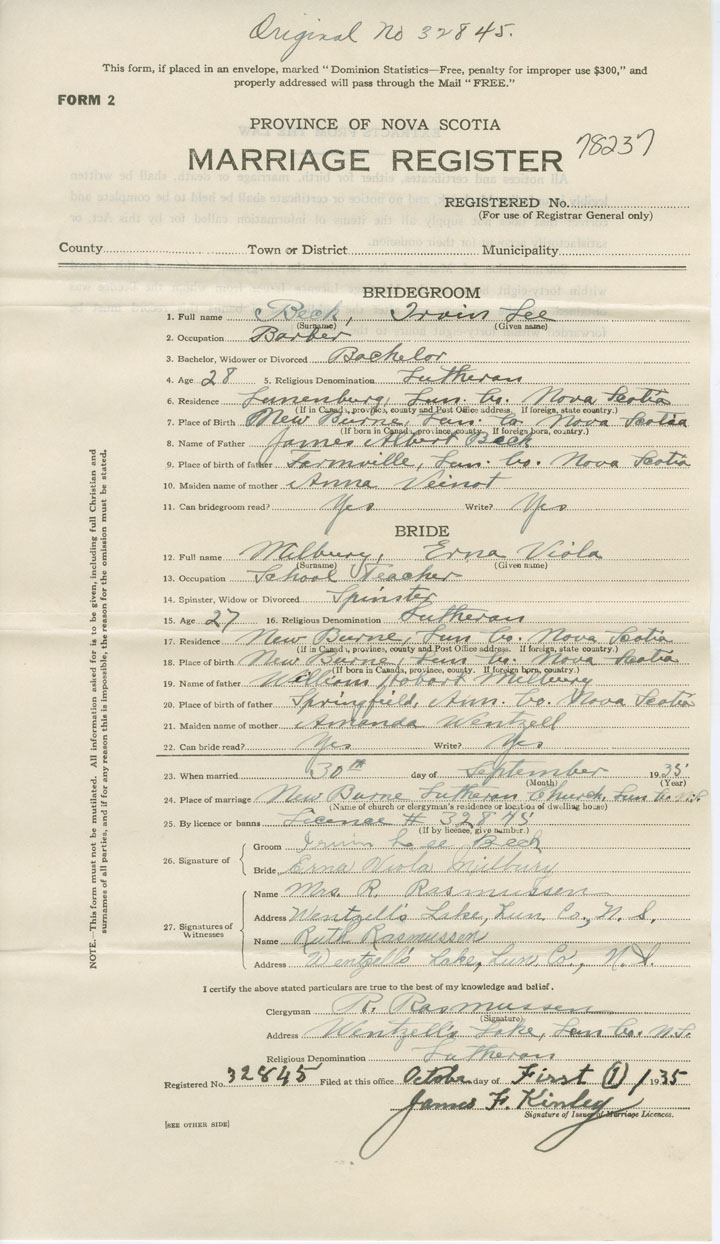 Original No 32845.
This form, if placed in an envelope, marked "Dominion Statistics—Free, penalty for improper use $300," and
properly addressed will pass through the Mail "FREE."
FORM 2
PROVINCE OF NOVA SCOTIA
MARRIAGE REGISTER 78237
REGISTERED No.
(For use of Registrar General only)
County Town or District Municipality
BRIDEGROOM
1. Full name Beck, Irvin Lee
(Surname) (Given name)
2. Occupation Barber
3. Bachelor, Widower or Divorced Bachelor
4. Age 28 5. Religious Denomination Lutheran
6. Residence Lunenburg, Lun. Co. Nova Scotia
(If in Canada, province, county and Post Office address. If foreign, state country.)
7. Place of Birth New Burne, Lun. Co. Nova Scotia
(If born in Canada, province, county. If foreign born, country.)
8. Name of Father James Albert Beck
9. Place of birth of father Farmville, Lun. Co. Nova Scotia
10. Maiden name of mother Anna Veinot
11. Can bridegroom read? Yes Write? Yes
BRIDE
12. Full name Milbury, Erna Viola
(Surname) (Given name)
13. Occupation School Teacher
14. Spinster, Widow or Divorced Spinster
15. Age 27 16. Religious Denomination Lutheran
17. Residence New Burne, Lun. Co. Nova Scotia
(If in Canada, province, county and Post Office address. If foreign, state country.)
18. Place of birth New Burne, Lun. Co. Nova Scotia
(If born in Canada, province, county. If foreign born, country.)
19. Name of father William Hobart Milbury
20. Place of birth of father Springfield, Ann. Co. Nova Scotia
21. Maiden name of mother Amanda Wentzell
22. Can bride read? Yes Write? Yes
23. When married 30th day of September 1935
(Month) (Year)
24. Place of marriage New Burne Lutheran Church, Lun. Co. N.S.
(Name of church or clergyman's residence or location of dwelling house)
25. By licence or banns Licence # 32845
(If by licence, give number.)
26. Signature of
Groom Irvin Lee Beck
Bride Erna Viola Milbury
27. Signatures of Witnesses
Name Mrs. R. Rasmussen
Address Wentzell's Lake, Lun. Co., N. S.
Name Ruth Rasmussen
Address Wentzell's Lake, Lun. Co., N. S.
I certify the above stated particulars are true to the best of my knowledge and belief.
Clergyman R. Rasmussen
(Signature)
Address Wentzell's Lake, Lun. Co. N.S.
Religious Denomination Lutheran
Registered No. 32845 Filed at this office October day of First (1) / 1935
James F. Kinley
Signature of Issuer of Marriage Licences.
[SEE OTHER SIDE]
NOTE.—This form must not be mutilated. All information asked for is to be given, including full Christian and
surnames of all parties, and if for any reason this is impossible, the reason for the omission must be stated.